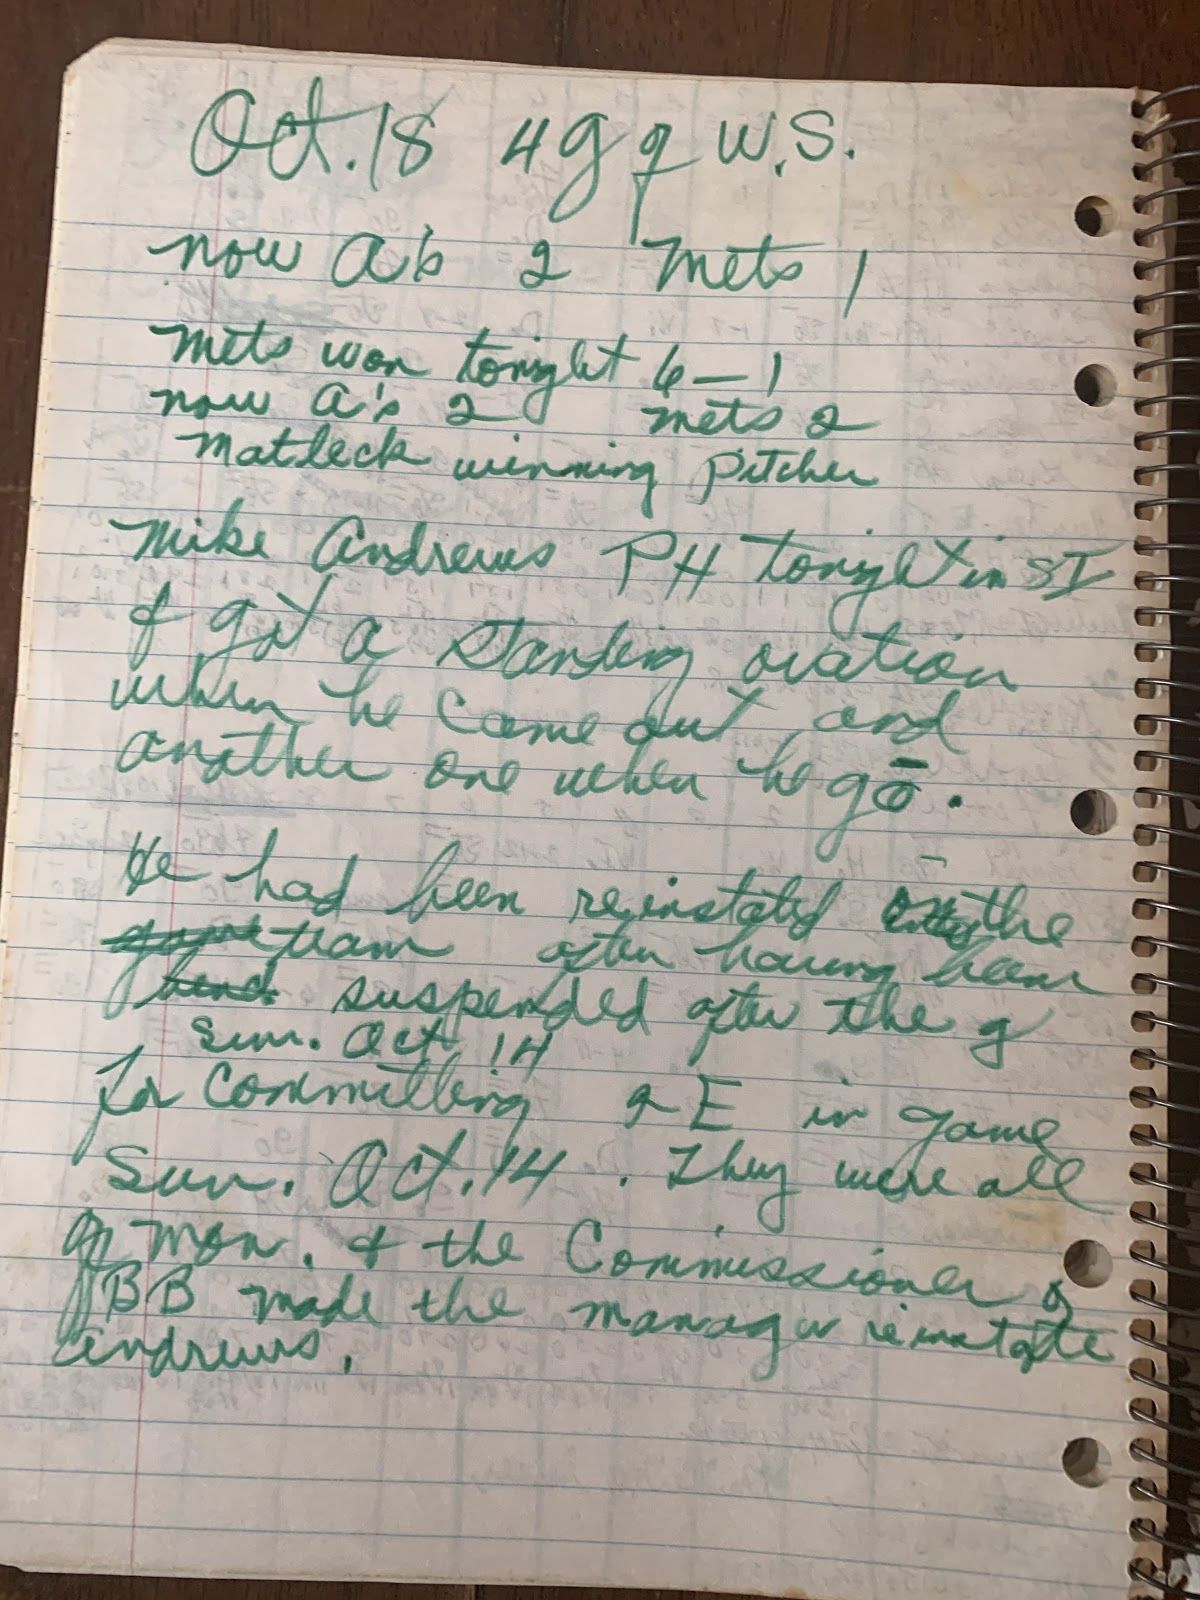 Oct. 18 4 g of W.S.
now A's 2 Mets 1
Mets won tonight 6-1
now A's 2 Mets 2
Matleck winning Pitcher
Mike Andrews PH tonight in 8I
& got a standing ovation
when he came out and
another one when he gō.
He had been reinstated on the
team after having been
suspended after the g
Sun. Oct 14
for committing 2 E in game
Sun. Oct. 14. They were all
Mon. & the Commissioner of
BB made the manager reinstate
Andrews.